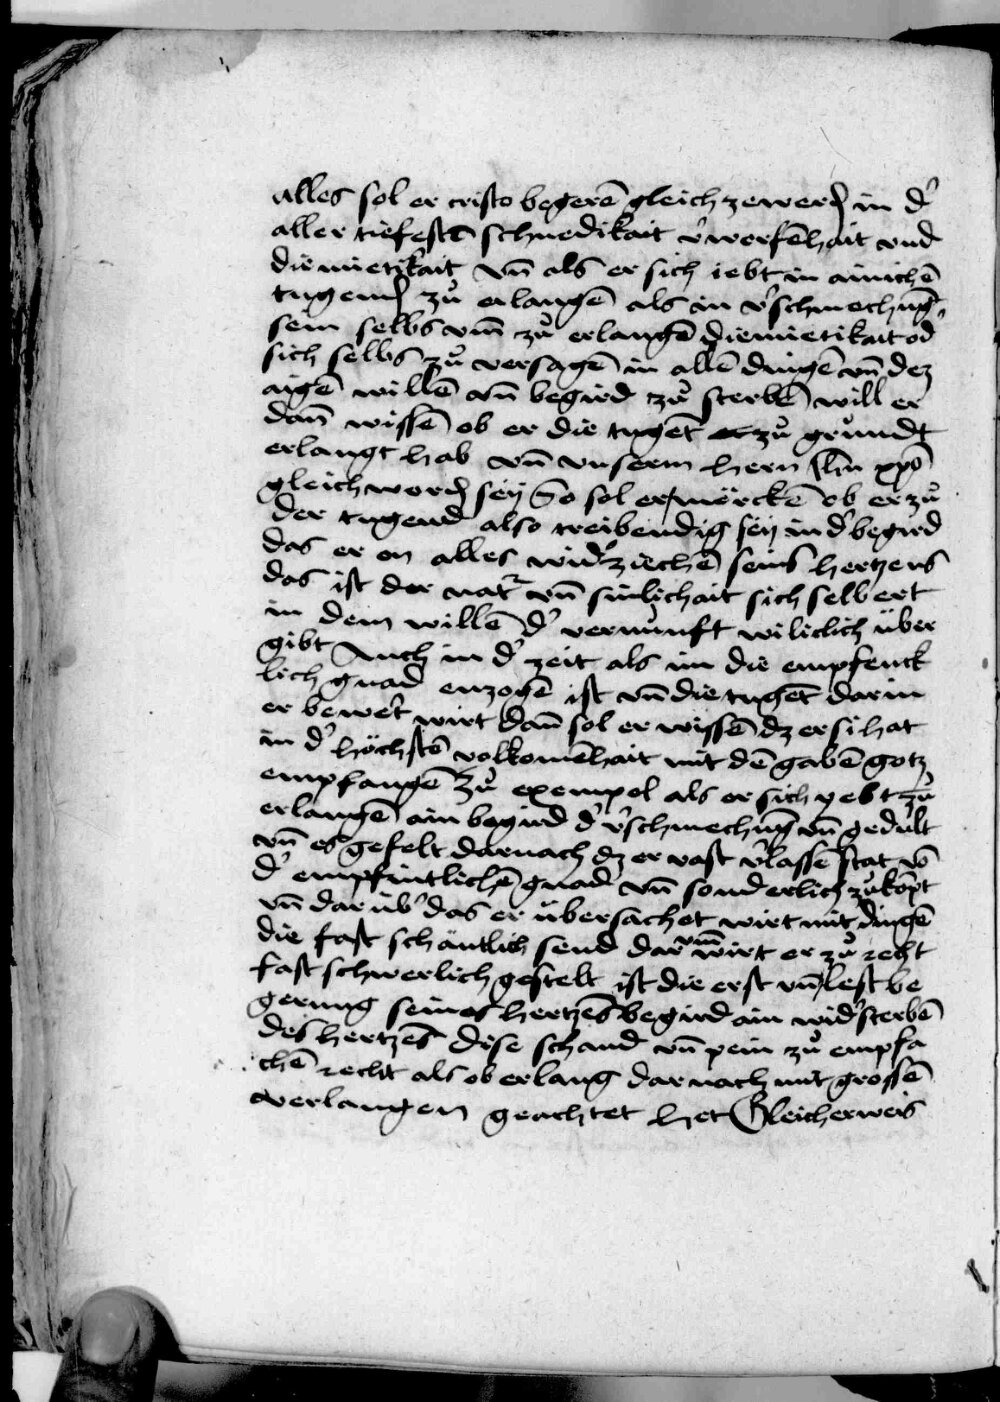 alles sol er cristo begerē gleich zewerdē in d'
aller tiefestē schnedikait v'worfēhait vnd
diemietikait vn̄ als er sich iebt in ainichē
tugend zů erlangē als in v'schmechūg
sein selbs vm̄ zů erlangē diemietikait od'
sich selbs zů versagē in allē dingē vn̄ dez
aigē willē vn̄ begird zů sterbē will er
dan̄ wissē ob er die tugēt zů grundt
erlangt hab vn̄ vnserm hern Jhū xpō
gleich wordē sey So sol er mercke ob er zů
der tugend also treibendig sey in d' begird
das er on alles wid'ziechē seins hertzens
das ist der nat' vn̄ sinlichait sich selbert
in dem willē d' vernunft wiliclich über
gibt Auch in d' zeit als im die empfenck
lich gnad enzogē ist vn̄ die tugēt dar in
er bewert wirt dan̄ sol er wissē dz er si hat
in d' höchstē volkomēhait mit dē gabē gotz
empfangē Zů exempel als er sich yebt zů
erlangē ain begird d' v'schmechūg vn̄ gedult
vn̄ es gefelt darnach dz er vast v'lassē stat vō
d' empfintlichē gnad vn̄ sonderlich zůkōpt
vn̄ dar üb' das er übersachet wirt mit dingē
die fast schäntlich send dar vm̄ wirt er zů recht
fast schwerlich gestelt ist die erst vn̄ lest be
gerung seines hertzēs begird ain wid'sterbē
des hertzēs dise schand vn̄ pein zů empfa
chē recht als ob er lang dar nach mit grossē
verlangen geachtet het Gleicherweis